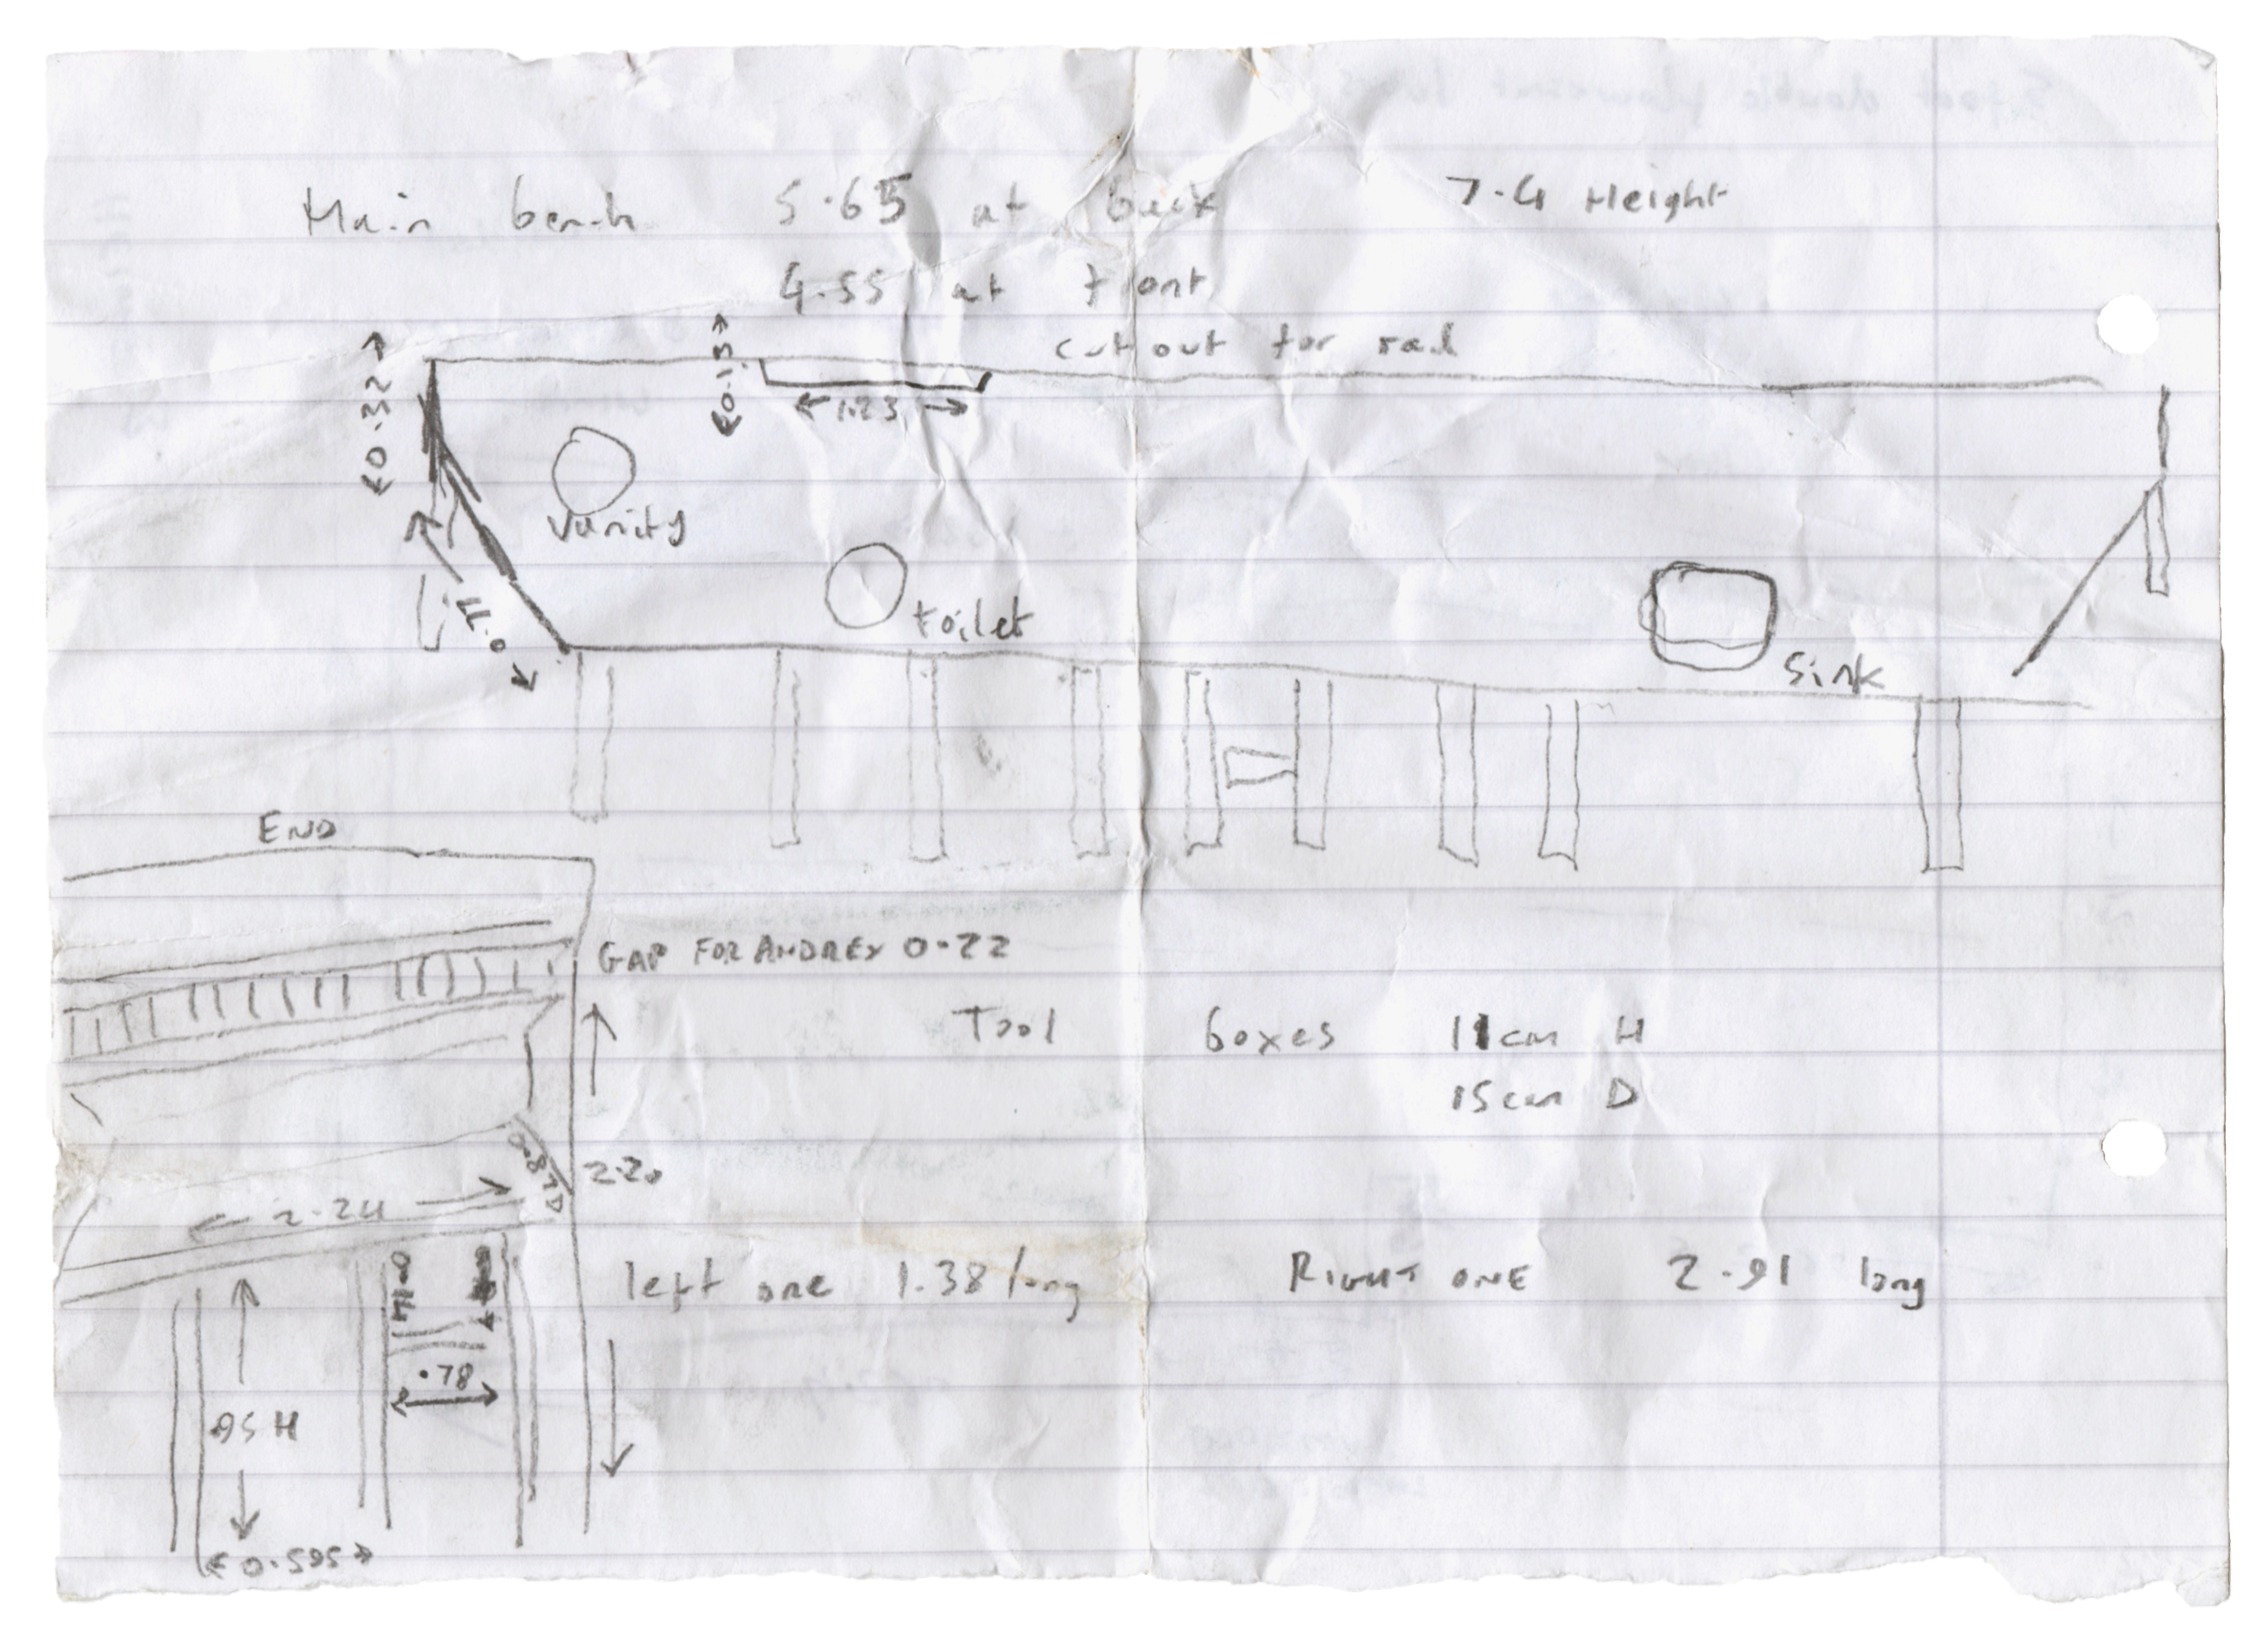 Main bench 5.65 at back 7.4 Height
4.55 at front
cut out for rad
0.32
0.13
1.23
Vanity
0.71
toilet
Sink
END
GAP FOR ANDREX 0.22
Tool boxes 11cm H
15cm D
2.20
2.24
left one 1.38 long RIGHT ONE 2.91 long
0.14
.78
.95 H
0.595